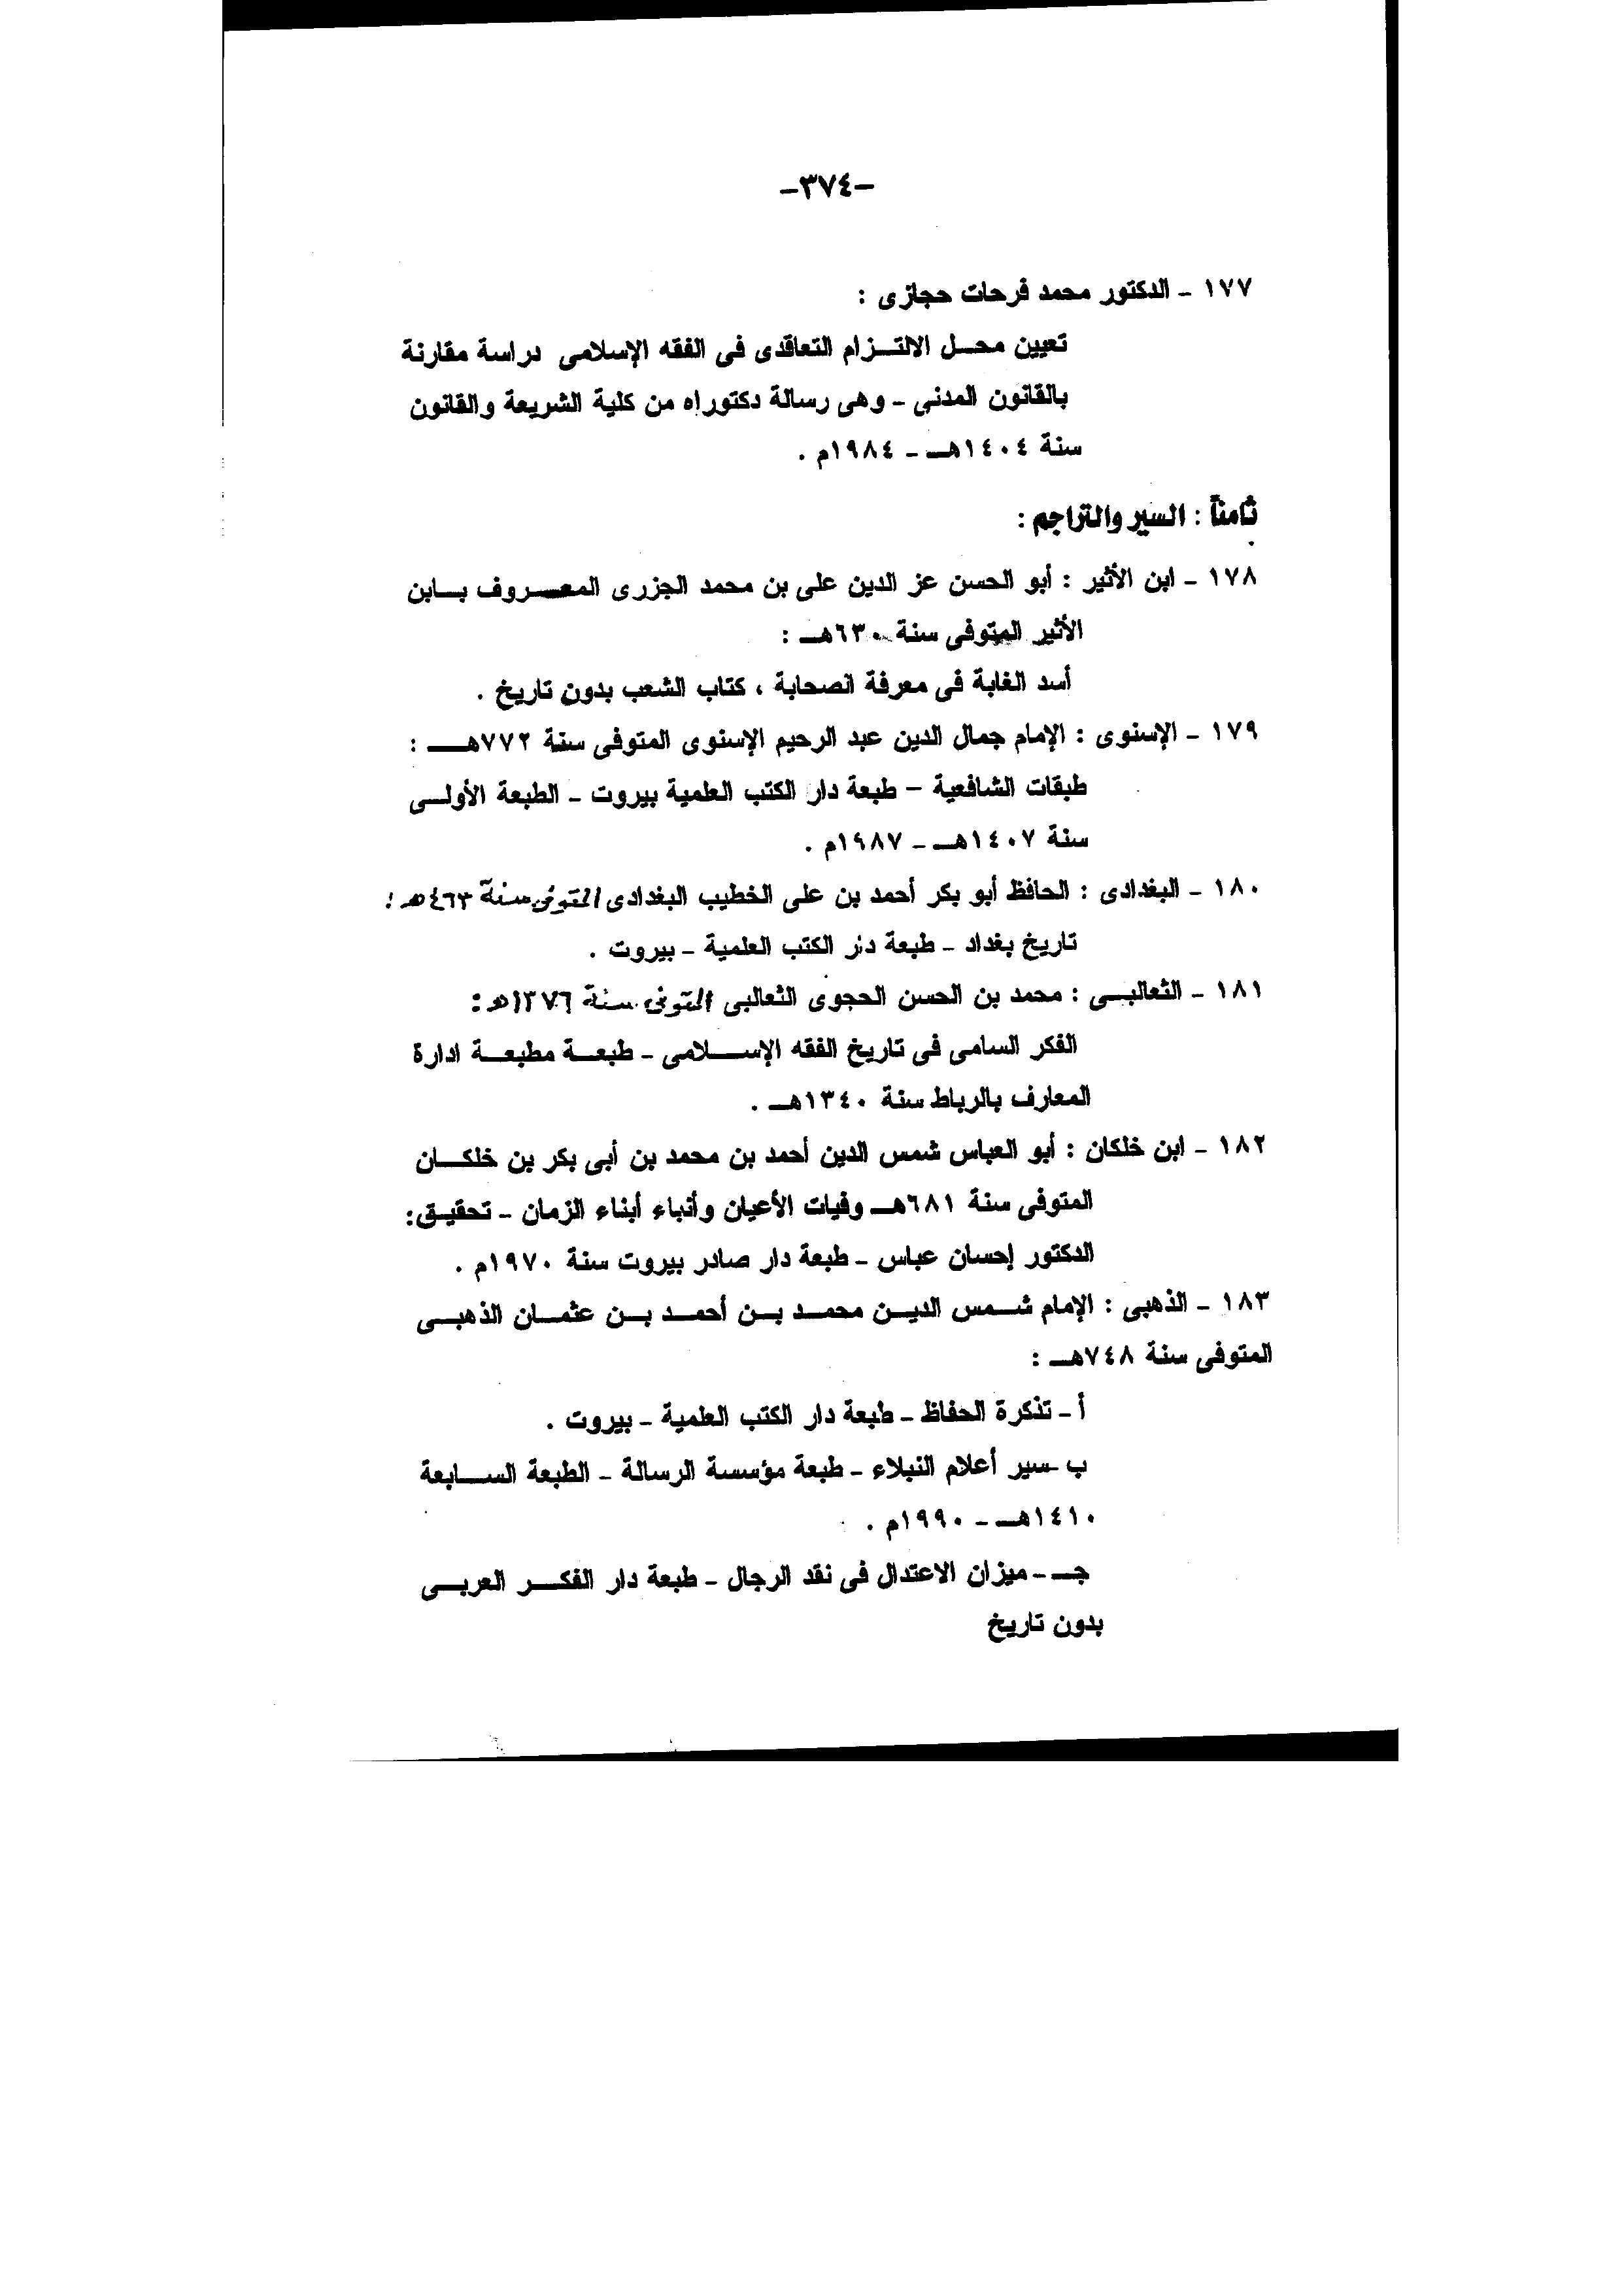 -٣٧٤-
١٧٧ - الدكتور محمد فرحات حجازى :
تعيين محل الالتزام التعاقدى فى الفقه الإسلامى دراسة مقارنة
بالقانون المدنى - وهى رسالة دكتوراه من كلية الشريعة والقانون
سنة ١٤٠٤هـ - ١٩٨٤م .
ثامناً : السير والتراجم :
١٧٨ - ابن الأثير : أبو الحسن عز الدين على بن محمد الجزرى المعروف بابن
الأثير المتوفى سنة ٦٣٠هـ :
أسد الغابة فى معرفة الصحابة ، كتاب الشعب بدون تاريخ .
١٧٩ - الإسنوى : الإمام جمال الدين عبد الرحيم الإسنوى المتوفى سنة ٧٧٢هـ :
طبقات الشافعية - طبعة دار الكتب العلمية بيروت - الطبعة الأولى
سنة ١٤٠٧هـ - ١٩٨٧م .
١٨٠ - البغدادى : الحافظ أبو بكر أحمد بن على الخطيب البغدادى المتوفى سنة ٤٦٣هـ :
تاريخ بغداد - طبعة دار الكتب العلمية - بيروت .
١٨١ - الثعالبى : محمد بن الحسن الحجوى الثعالبى المتوفى سنة ١٣٧٦هـ :
الفكر السامى فى تاريخ الفقه الإسلامى - طبعة مطبعة ادارة
المعارف بالرباط سنة ١٣٤٠هـ .
١٨٢ - ابن خلكان : أبو العباس شمس الدين أحمد بن محمد بن أبى بكر بن خلكان
المتوفى سنة ٦٨١هـ وفيات الأعيان وأنباء أبناء الزمان - تحقيق:
الدكتور إحسان عباس - طبعة دار صادر بيروت سنة ١٩٧٠م .
١٨٣ - الذهبى : الإمام شمس الدين محمد بن أحمد بن عثمان الذهبى
المتوفى سنة ٧٤٨هـ :
أ - تذكرة الحفاظ - طبعة دار الكتب العلمية - بيروت .
ب - سير أعلام النبلاء - طبعة مؤسسة الرسالة - الطبعة السابعة
١٤١٠هـ - ١٩٩٠م .
جـ - ميزان الاعتدال فى نقد الرجال - طبعة دار الفكر العربى
بدون تاريخ